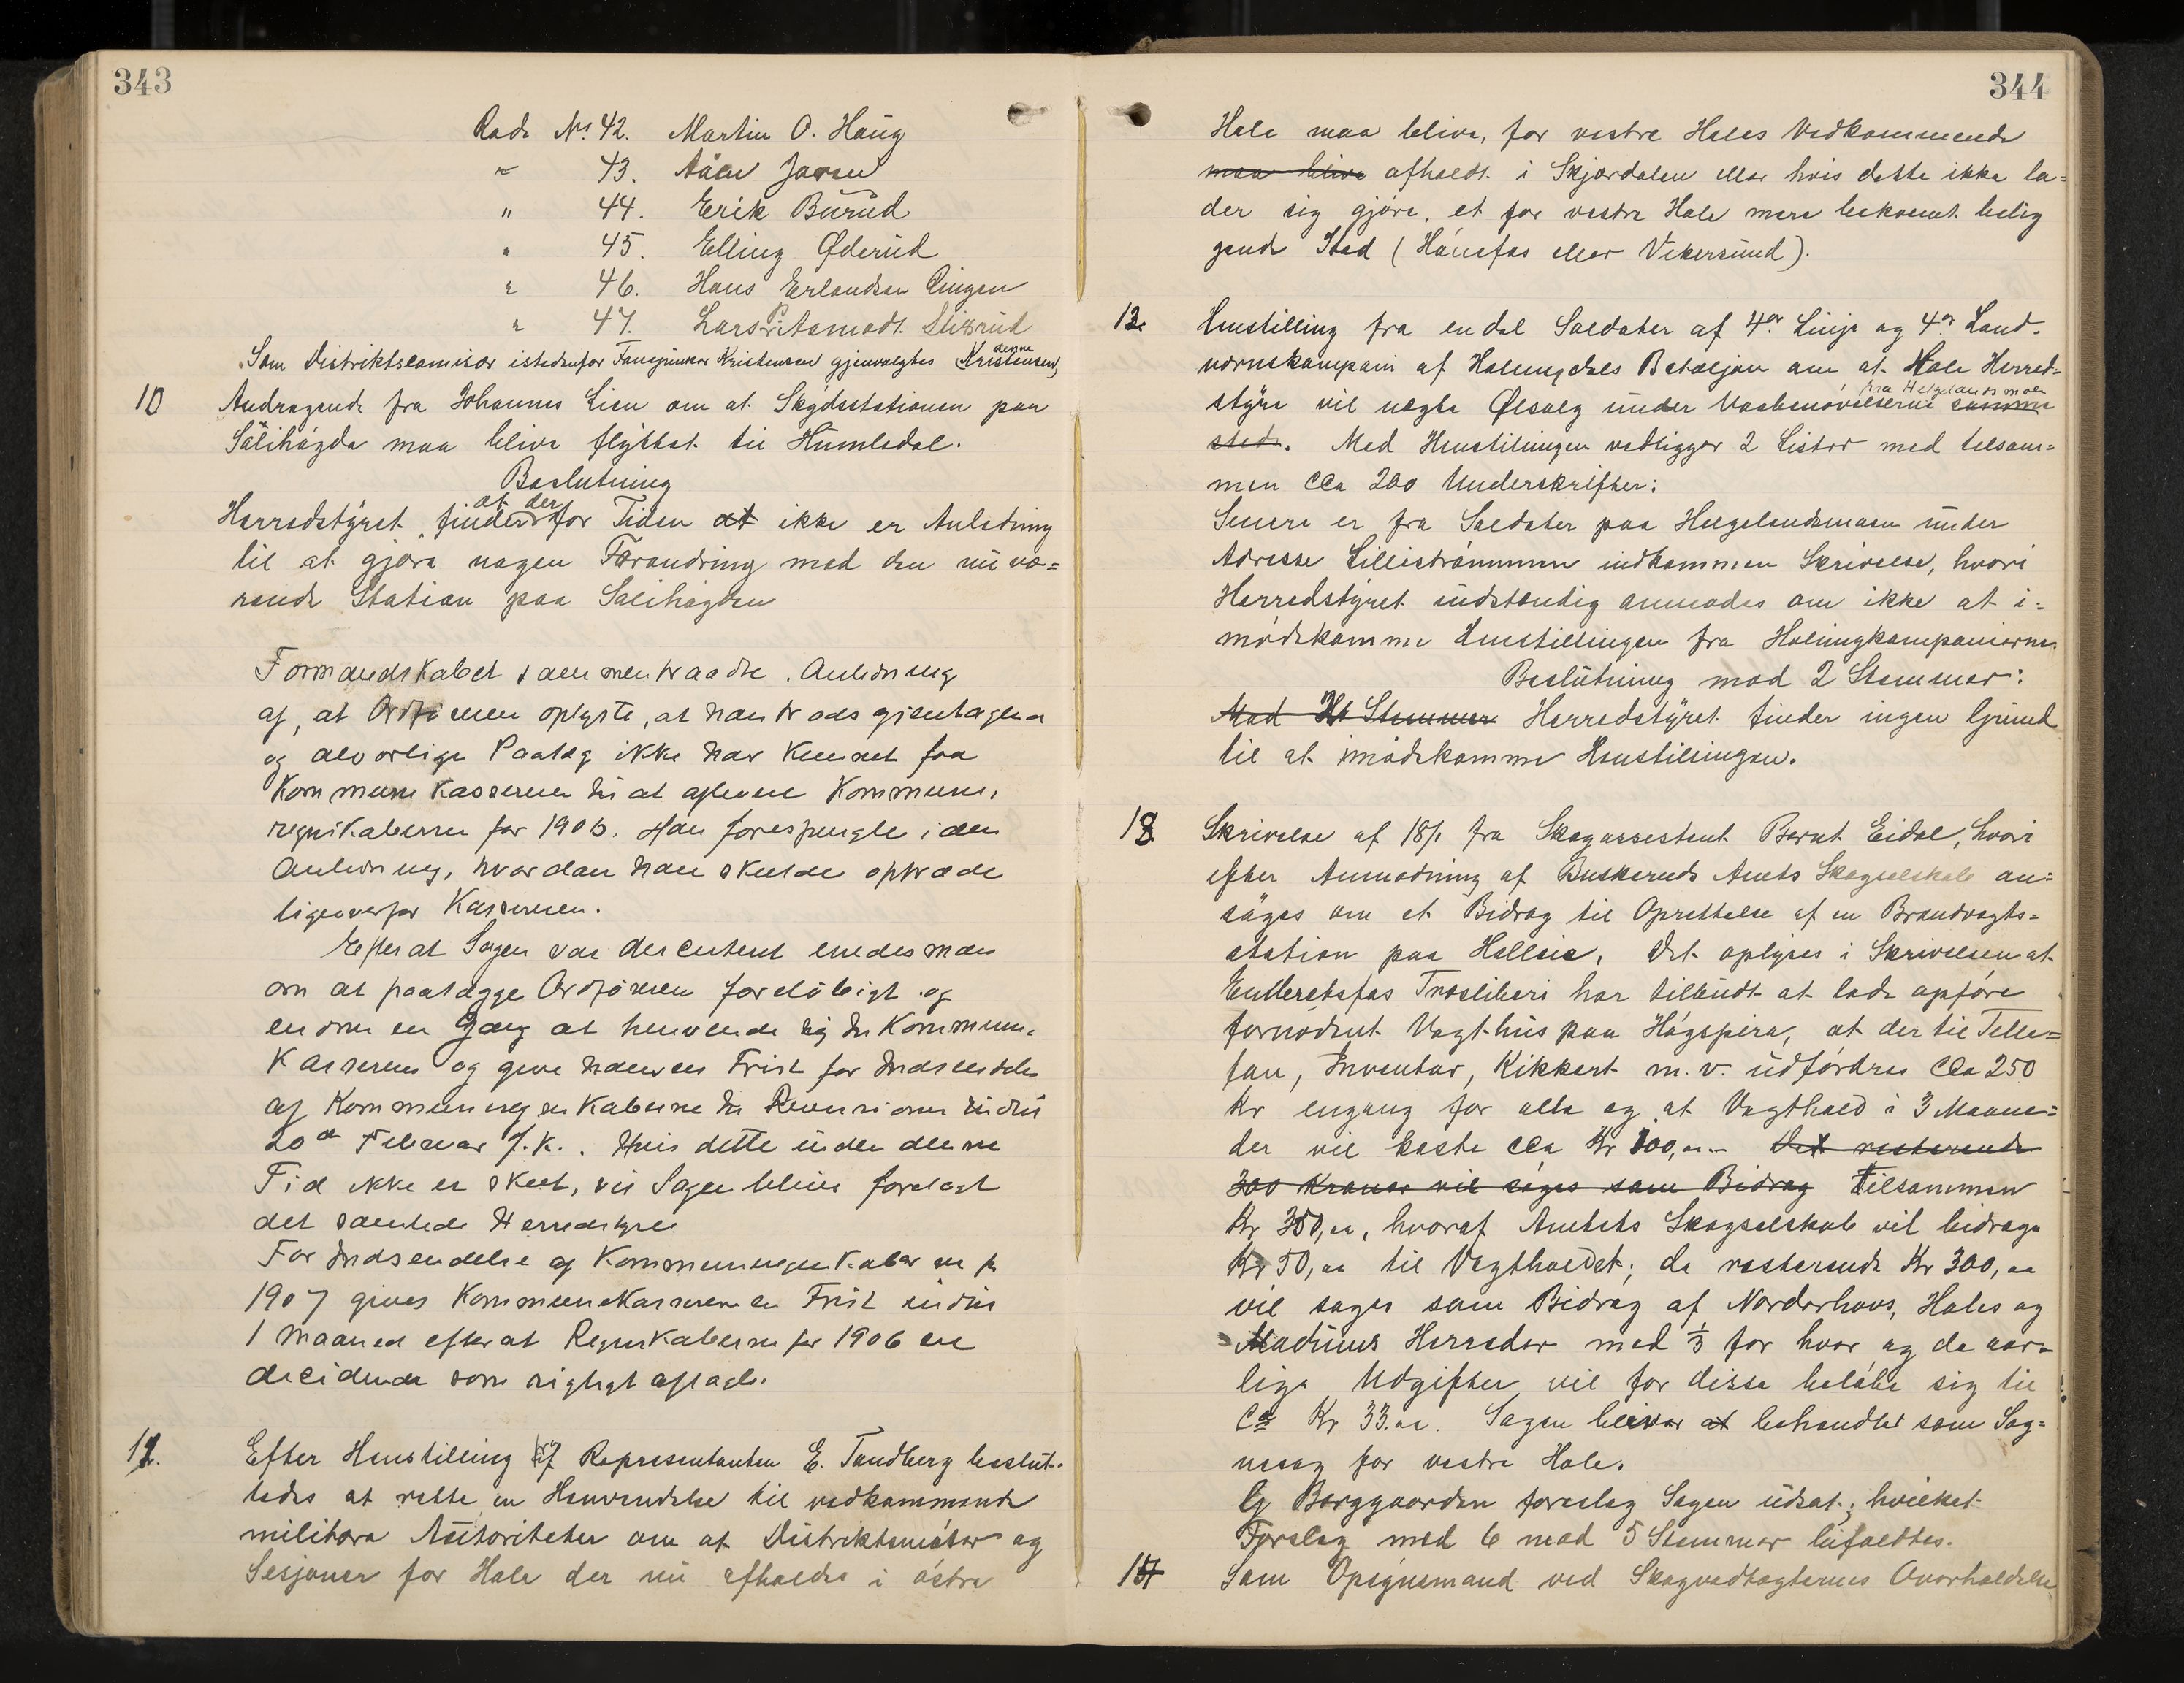 343
Rode No. 42. Martin O. Haug
" 43. Aäen Jonsen
" 44. Erik Burud
" 45. Elling Øderud
" 46. Hans Erlandsen Ringen
" 47. Lars P. Asmodt
Som Distriktscomisær istedenfor Fansjunker Kristensen gjenvalgtes denne
10 Andragende fra Johannes Lien om at Skydsstationen paa
Solihøgda maa blive flyttet til Humledal.
Beslutning
Herredstyret finder at der for Tiden at ikke er Anledning
til at gjøre nogen Forandring med den nuvæ=
rende Station paa Solihøgden
Formandskabet sammentraadte. Anledning
af, at Ordføreren oplyste, at han trods gjentagene
og alvorlige Paalæg ikke har kunnet faa
Kommunekassereren til at aflevere Kommune-
regnskaberne for 1906. Han forespurgte i den
Anledning, hvordan han skulde optræde
ligeoverfor Kassereren.
Efterat Sagen var discuteret enedes man
om at paalægge Ordføreren foreløbigt og
endnu en Gang at henvende sig til Kommune-
Kassereren og give ham en Frist for Indsendelse
af Kommuneregnskaberne til Revisionen indtil
20de Februar f. k.. Hvis dette inden denne
Tid ikke er skeet, vil Sagen blive forelagt
det samlede Herredstyre
For Indsendelse af Kommuneregnskaberne for
1907 gives Kommunekassereren en Frist indtil
1 Maaned efterat Regnskaberne for 1906 er
deciderede som rigtigt aflagte.
11. Efter Henstilling af Representanten E. Tandberg beslut-
tedes at rette en Henvendelse til vedkommende
militære Autoriteter om at Distriktsmøter og
Sesjoner for Hole der nu afholdes i østre
344
Hole maa blive, for vestre Holes Vedkommende
maa blive afholdt i Skjærdalen eller hvis dette ikke la=
der sig gjøre, et for vestre Hole mere bekvemt belig
gende Sted (Hønefos eller Vikersund).
12. Henstilling fra endel Soldater af 4de Linje og 4de Land-
værnskompani af Halingdals Bataljon om at Hole Herred-
styre vil nægte Ølsalg under Vaabenøvelserne fra Helgelandsmoen samme
sted. Med Henstillingen vedligger 2 Lister med tilsam=
men cca 200 Underskrifter:
Senere er fra Soldater paa Helgelandsmoen under
Adresse Lillestrømmen indkommen Skrivelse, hvori
Herredstyret indstændig anmodes om ikke at i=
mødekomme Henstillingen fra Halingkompanierne.
Beslutning mod 2 Stemmer:
Mod Stemmer Herredstyret finder ingen Grund
til at imødekomme Henstillingen.
13 Skrivelse af 18/1 fra Skogassistent Bernt Eidal, hvori
efter Anmodning af Buskeruds Amts Skogselskab an=
søges om et Bidrag til Oprettelse af en Brandvagts=
station paa Holleia. Det oplyses i Skrivelsen at
Embretsfos Træsliberi har tilbudt at lade opføre
fornødent Vagthus paa Høgspira, at der til Tele=
fon, Inventar, Kikkert m.v. udfordres cca 250
Kr engang for alle og at Vagthold i 3 Maane=
der vil koste cca Kr 100,oo.- Det resterende
300 Kroner vil søges som Bidrag Tilsammen
Kr 350,oo, hvoraf Amtets Skogselskab vil bidrage
Kr 50,oo til Vagtholdet; de resterende Kr 300,oo
vil søges som Bidrag af Norderhovs, Holes og
Modums Herreder med 1/3 for hver og de aar=
lige Udgifter vil for disse beløbe sig til
Ca Kr 33.oo. Sagen bliver at behandlet som Sog=
nesag for vestre Hole.
G Borggaarden foreslog Sagen udsat; hvilket
Forslag med 6 mod 5 Stemmer bifaldtes.
14 Som Opsynsmand ved Skogvedtægternes Overholdelse